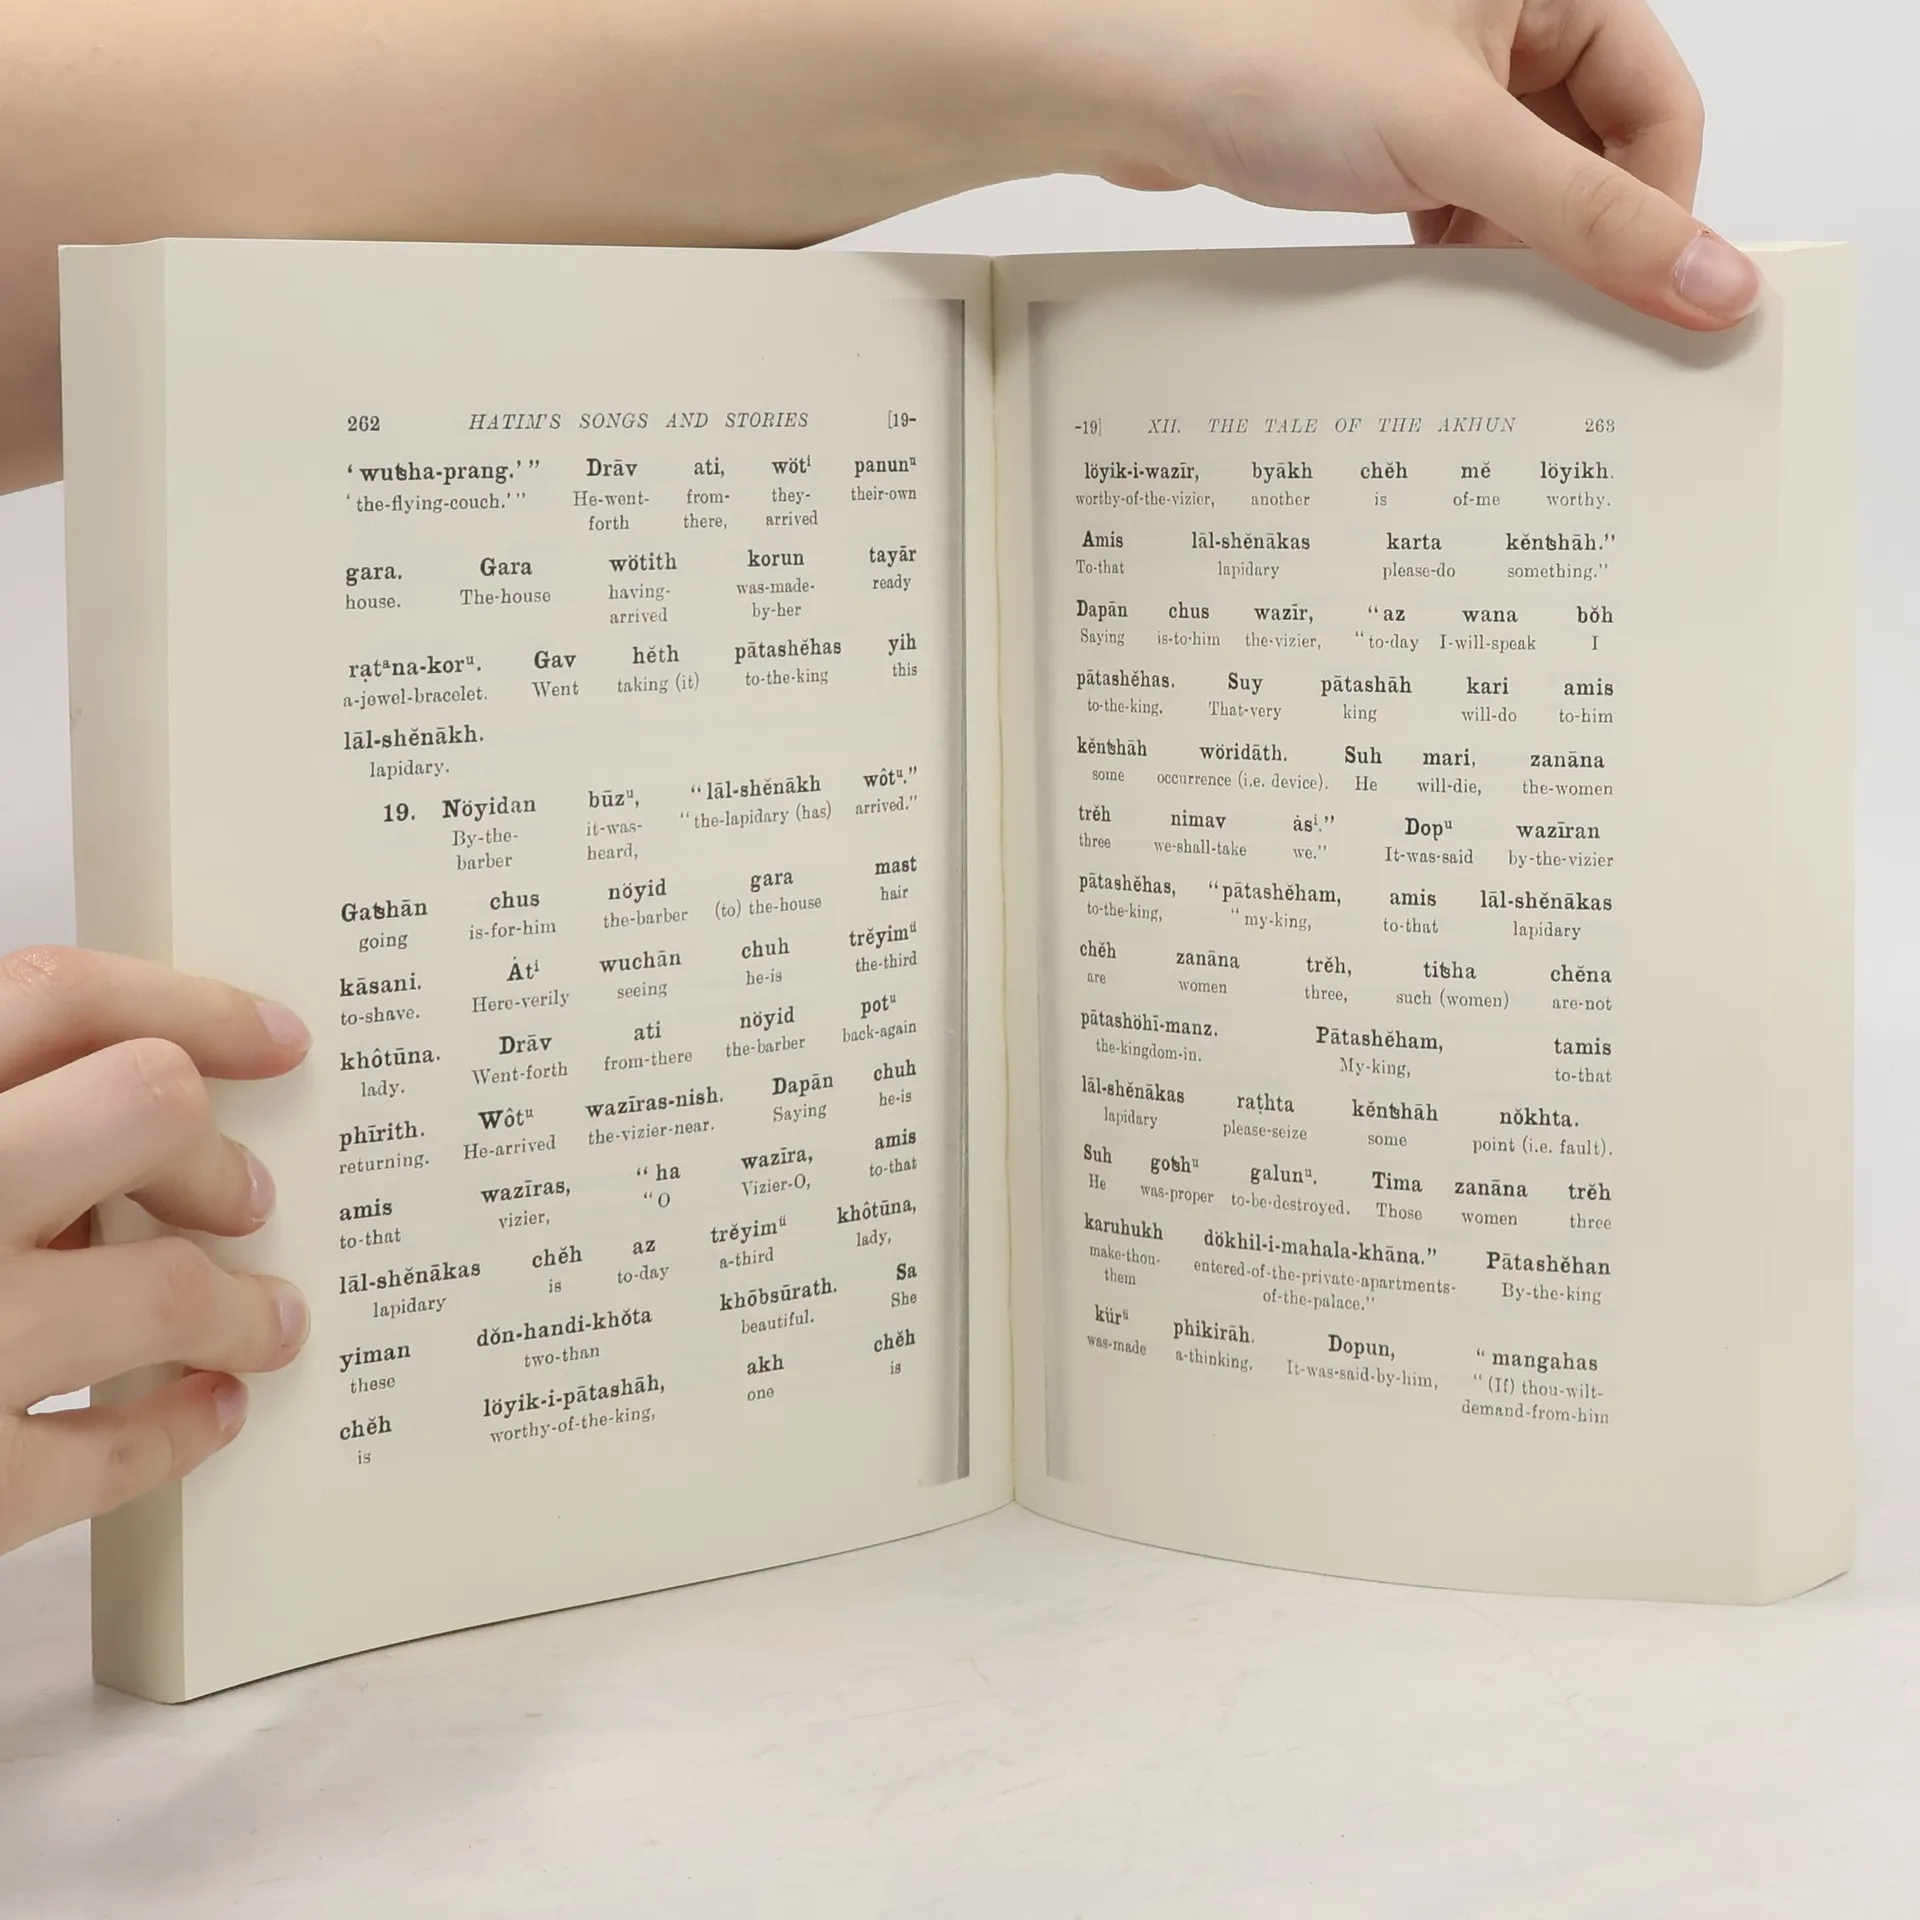 262 HATIM'S SONGS AND STORIES [19-
‘wuƫsha-prang.’” Drāv ati, wötⁱ panunᵘ
‘the-flying-couch.’” He-went- from- they- their-own
forth there, arrived
gara. Gara wötith korun tayār
house. The-house having- was-made- ready
arrived by-her
raṭᵃna-korᵘ. Gav hĕth pātashĕhas yih
a-jewel-bracelet. Went taking (it) to-the-king this
lāl-shĕnākh.
lapidary.
19. Nöyidan būzᵘ, “lāl-shĕnākh wôtᵘ.”
By-the- it-was- “the-lapidary (has) arrived.”
barber heard,
Gaƫshān chus nöyid gara mast
going is-for-him the-barber (to) the-house hair
kāsani. Ȧtⁱ wuchān chuh trĕyimᵘ̈
to-shave. Here-verily seeing he-is the-third
khôtūna. Drāv ati nöyid potᵘ
lady. Went-forth from-there the-barber back-again
phīrith. Wôtᵘ wazīras-nish. Dapān chuh
returning. He-arrived the-vizier-near. Saying he-is
amis wazīras, “ha wazīra, amis
to-that vizier, “O Vizier-O, to-that
lāl-shĕnākas chĕh az trĕyimᵘ̈ khôtūna,
lapidary is to-day a-third lady,
yiman dŏn-handi-khŏta khōbsūrath. Sa
these two-than beautiful. She
chĕh löyik-i-pātashāh, akh chĕh
is worthy-of-the-king, one is
-19] XII. THE TALE OF THE AKHUN 263
löyik-i-wazīr, byākh chĕh mĕ löyikh.
worthy-of-the-vizier, another is of-me worthy.
Amis lāl-shĕnākas karta kĕnƫshāh.”
To-that lapidary please-do something.”
Dapān chus wazīr, “az wana bŏh
Saying is-to-him the-vizier, “to-day I-will-speak I
pātashĕhas. Suy pātashāh kari amis
to-the-king. That-very king will-do to-him
kĕnƫshāh wöridāth. Suh mari, zanāna
some occurrence (i.e. device). He will-die, the-women
trĕh nimav ȧsⁱ.” Dopᵘ wazīran
three we-shall-take we.” It-was-said by-the-vizier
pātashĕhas, “pātashĕham, amis lāl-shĕnākas
to-the-king, “my-king, to-that lapidary
chĕh zanāna trĕh, tiƫsha chĕna
are women three, such (women) are-not
pātashöhī-manz. Pātashĕham, tamis
the-kingdom-in. My-king, to-that
lāl-shĕnākas raṭhta kĕnƫshāh nŏkhta.
lapidary please-seize some point (i.e. fault).
Suh goƫshᵘ galunᵘ. Tima zanāna trĕh
He was-proper to-be-destroyed. Those women three
karuhukh dökhil-i-mahala-khāna.” Pātashĕhan
make-thou- entered-of-the-private-apartments- By-the-king
them of-the-palace.”
kürᵘ̈ phikirāh. Dopun, “mangahas
was-made a-thinking. It-was-said-by-him, “(If) thou-wilt-
demand-from-him